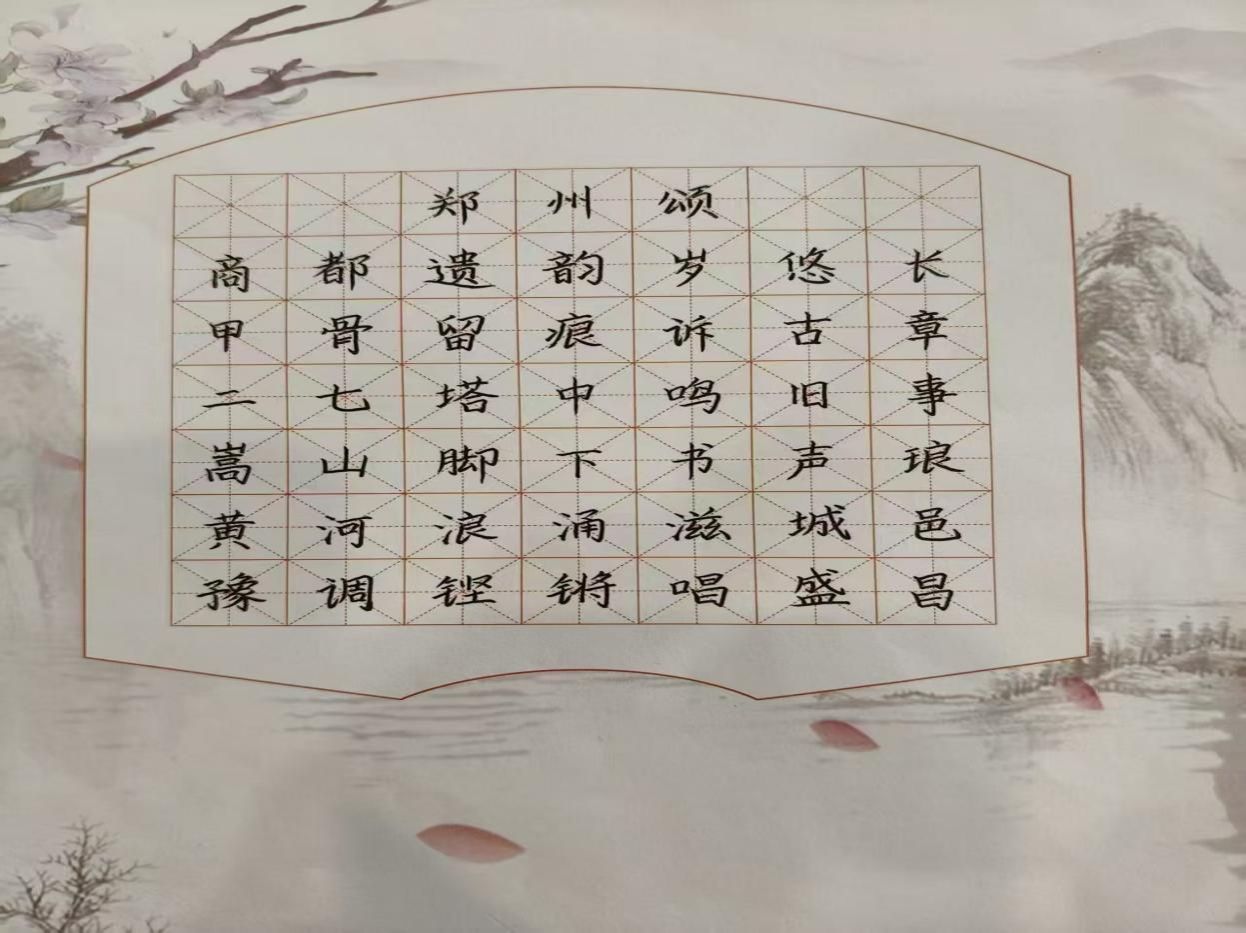 郑州颂
商都遗韵岁悠长
甲骨留痕诉古章
二七塔中鸣旧事
嵩山脚下书声琅
黄河浪涌滋城邑
豫调铿锵唱盛昌